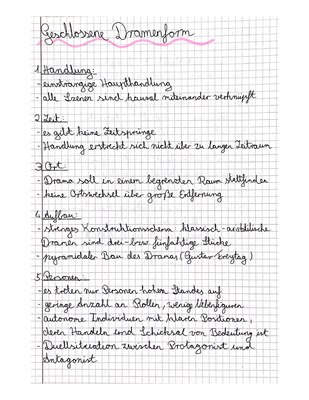 Geschlossene Dramenform
1. Handlung:
- einsträngige Haupthandlung
- alle Szenen sind kausal miteinander verknüpft
2. Zeit:
- es gibt keine Zeitsprünge
- Handlung erstreckt sich nicht über zu langen Zeitraum
3. Ort:
- Drama soll in einem begrenzten Raum stattfinden
- keine Ortswechsel über große Entfernung
4. Aufbau:
- strenges Konstruktionsschema klassisch-aristotelische
Dramen sind drei- bzw. fünfaktige Stücke
- pyramidaler Bau des Dramas (Gustav Freytag)
5. Personen
- es treten nur Personen hohen Standes auf
- geringe Anzahl an Rollen, wenige Nebenfiguren
- autonome Individuen mit klaren Positionen,
deren Handeln und Schicksal von Bedeutung ist
- Duellsituation zwischen Protagonist und
Antagonist